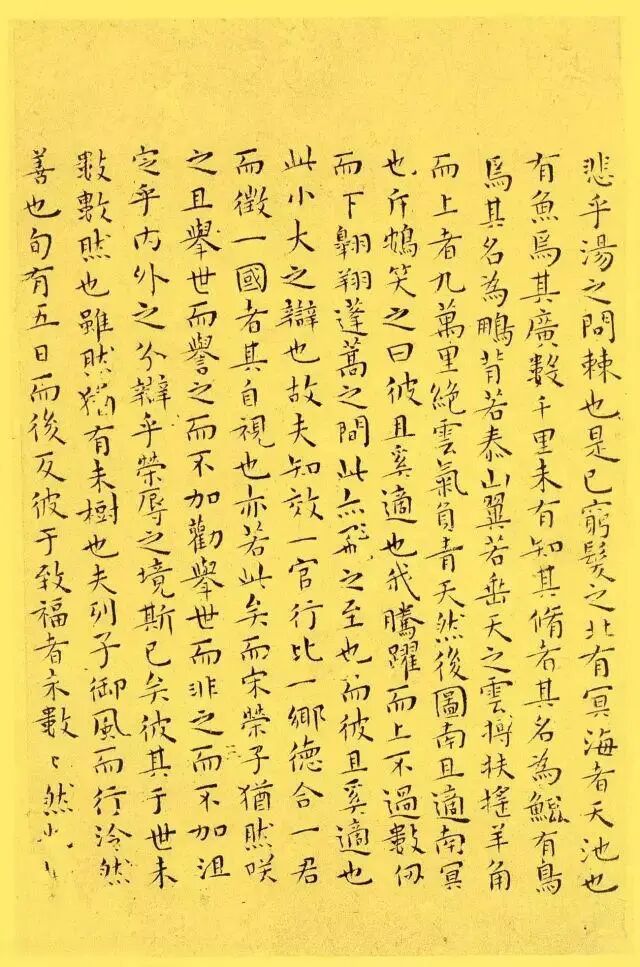 悲乎湯之問棘也是已窮髮之北有冥海者天池也
有魚焉其廣數千里未有知其脩者其名為鯤有鳥
焉其名為鵬背若泰山翼若垂天之雲摶扶搖羊角
而上者九萬里絕雲氣負青天然後圖南且適南冥
也斥鴳笑之曰彼且奚適也我騰躍而上不過數仞
而下翱翔蓬蒿之間此亦飛之至也而彼且奚適也
此小大之辯也故夫知效一官行比一鄉德合一君
而徵一國者其自視也亦若此矣而宋榮子猶然咲
之且舉世而譽之而不加勸舉世而非之而不加沮
定乎内外之分辯乎榮辱之境斯已矣彼其于世未
數數然也雖然猶有未樹也夫列子御風而行泠然
善也旬有五日而後反彼于致福者未數〻然